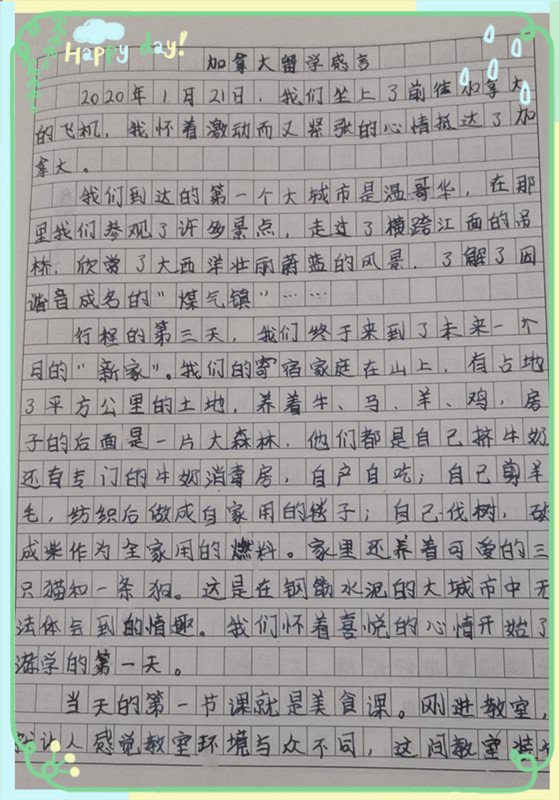 Happy day!
加拿大留学感言
2020年1月21日，我们坐上了前往加拿大
的飞机，我怀着激动而又紧张的心情抵达了加
拿大。
我们到达的第一个大城市是温哥华，在那
里我们参观了许多景点，走过了横跨江面的吊
桥，欣赏了大西洋壮丽蔚蓝的风景，了解了因
谐音成名的“煤气镇”……
行程的第三天，我们终于来到了未来一个
月的“新家”。我们的寄宿家庭在山上，有占地
3平方公里的土地，养着牛、马、羊、鸡，房
子的后面是一片大森林，他们都是自己挤牛奶
还有专门的牛奶消毒房，自产自吃；自己剪羊
毛，纺织后做成自家用的毯子；自己伐树，砍
成柴作为全家用的燃料。家里还养着可爱的三
只猫和一条狗。这是在钢筋水泥的大城市中无
法体会到的情趣。我们怀着喜悦的心情开始了
游学的第一天。
当天的第一节课就是美食课。刚进教室，
就让人感觉教室环境与众不同，这间教室装